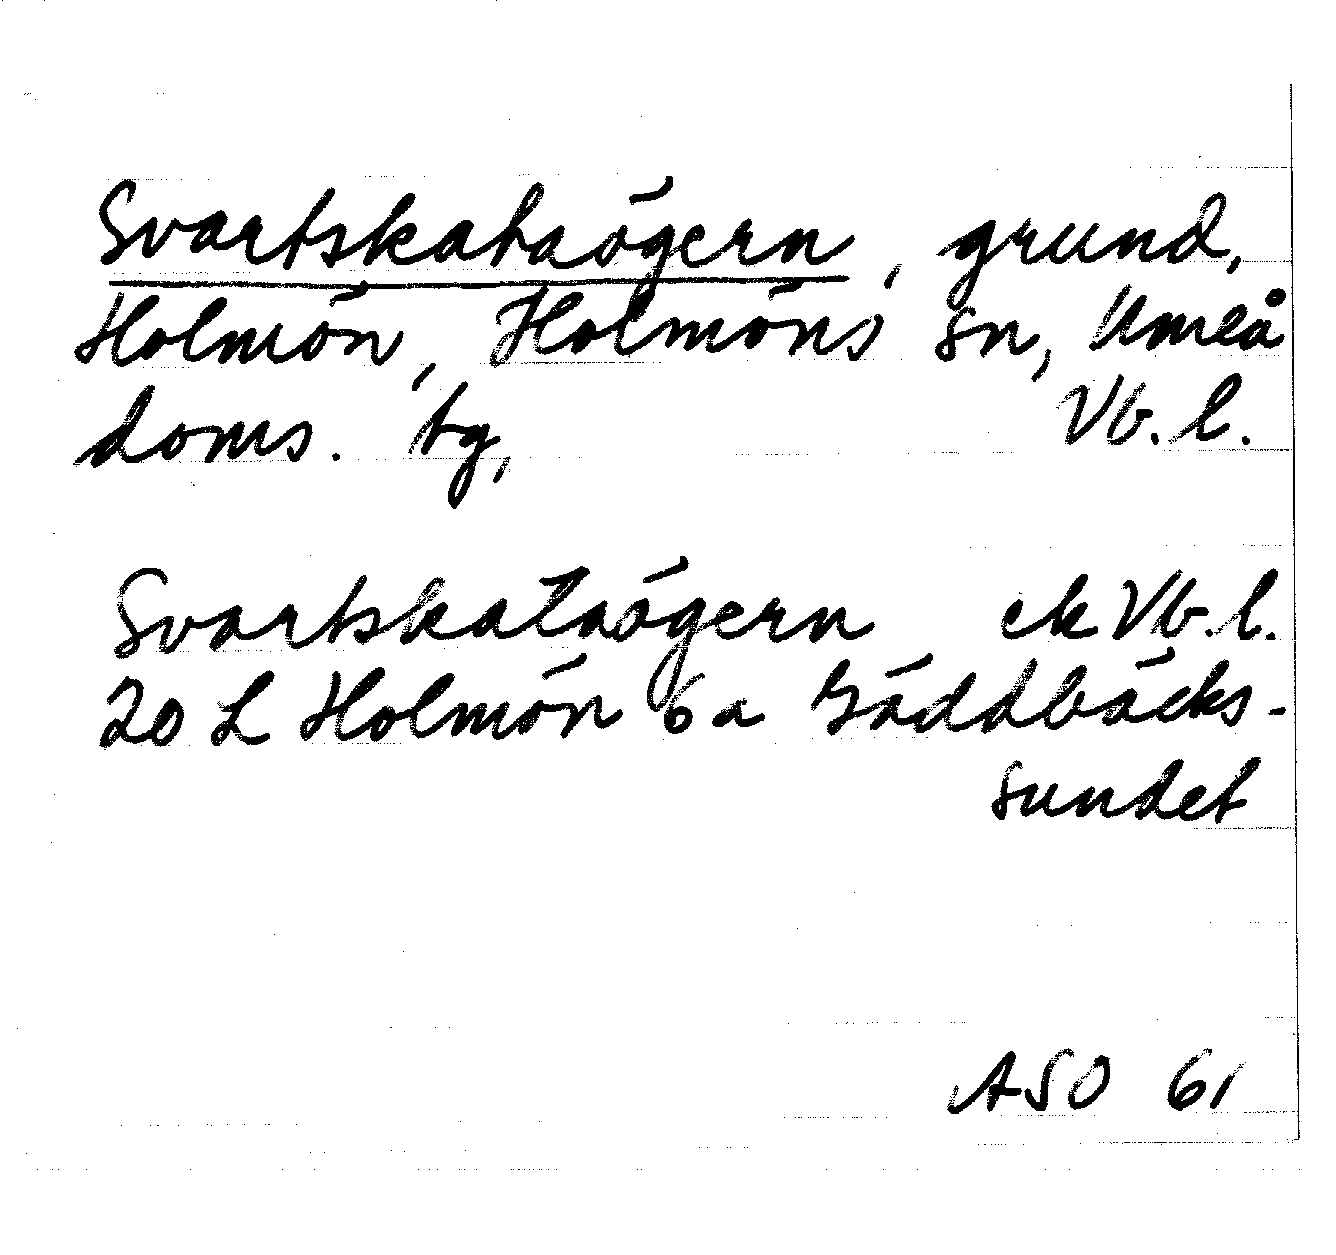 Svartskataögern, grund,
Holmön, Holmöns sn, Umeå
doms. tg, Vb. l.
Svartskataögern ek Vb. l.
20 L Holmön 6a Gäddbäcks-
sundet
ASO 61